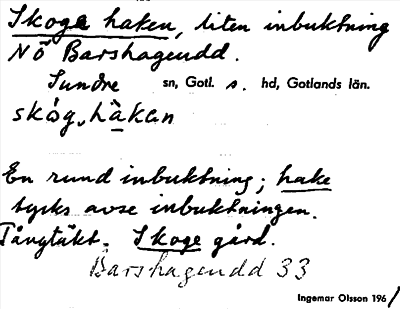 Skoge haken, liten inbuktning
NÖ Barshageudd.
Sundre sn, Gotl. s. hd, Gotlands län.
skóg, hàkan
En rund inbuktning; hake
tycks avse inbuktningen.
Tångtäkt. Skoge gård.
Barshageudd 33
Ingemar Olsson 1961